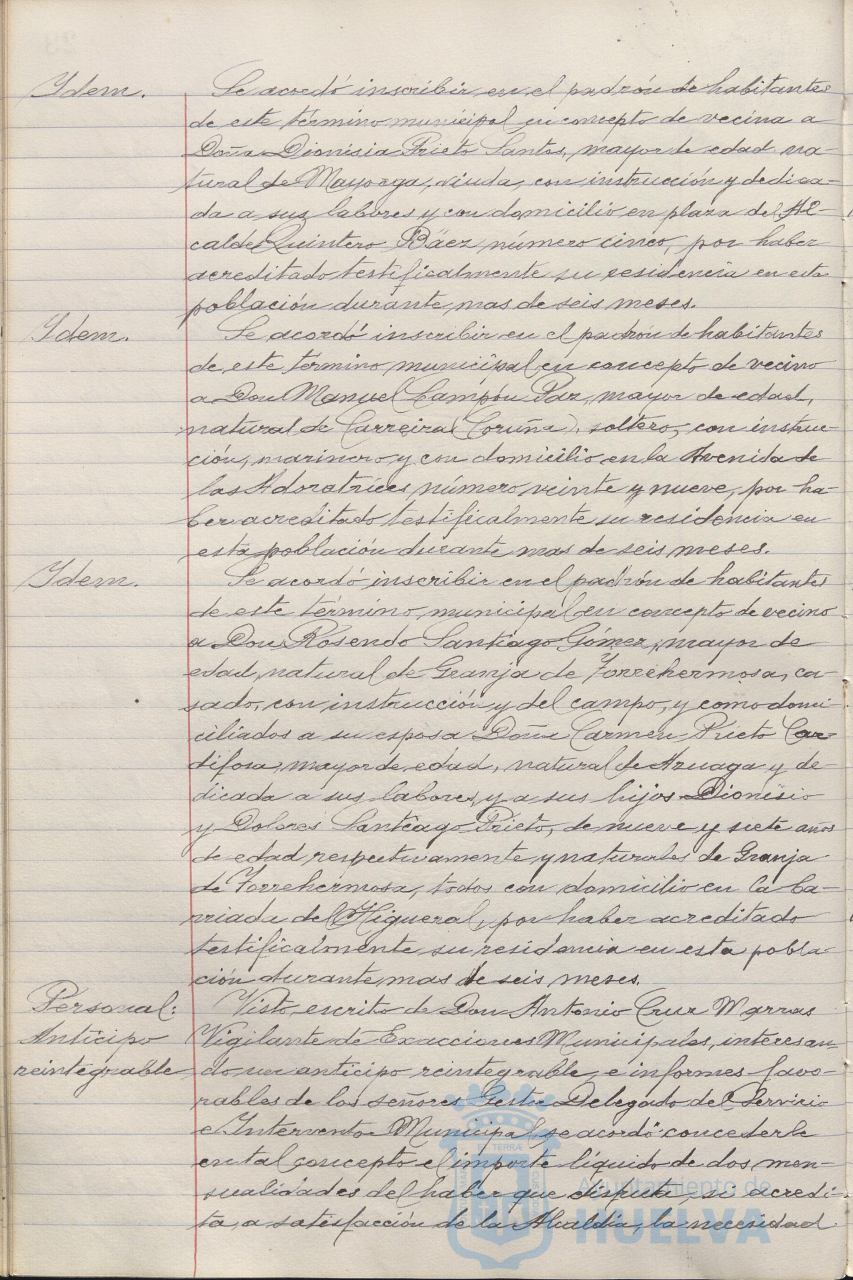 Ydem. Se acordó inscribir en el padrón de habitantes
de este término municipal en concepto de vecina a
Doña Dionisia Prieto Santos, mayor de edad, na-
tural de Mayorga, viuda, con instrucción y dedica-
da a sus labores y con domicilio en plaza del Al-
calde Quintero Báez, número cinco, por haber
acreditado testificalmente su residencia en esta
población durante mas de seis meses.
Ydem. Se acordó inscribir en el padrón de habitantes
de este término municipal en concepto de vecino
a Don Manuel Campón Paz, mayor de edad,
natural de Carreira (Coruña), soltero, con instruc-
ción, marinero y con domicilio en la Avenida de
las Adoratrices número veinte y nueve, por ha-
ber acreditado testificalmente su residencia en
esta población durante mas de seis meses.
Ydem. Se acordó inscribir en el padrón de habitantes
de este término municipal en concepto de vecino
a Don Rosendo Santiago Gómez, mayor de
edad, natural de Granja de Torrehermosa, ca-
sado, con instrucción y del campo, y como domi-
ciliados a su esposa Doña Carmen Prieto Car-
difosa, mayor de edad, natural de Azuaga y de-
dicada a sus labores, y a sus hijos Dionisio
y Dolores Santiago Prieto, de nueve y siete años
de edad respectivamente y naturales de Granja
de Torrehermosa, todos con domicilio en la ba-
rriada del Higueral, por haber acreditado
testificalmente su residencia en esta pobla-
ción durante mas de seis meses.
Personal: Visto escrito de Don Antonio Cruz Marras
Anticipo Vigilante de Exacciones Municipales, interesan-
reintegrable do un anticipo reintegrable, e informes favo-
rables de los señores Gestor Delegado del Servicio
e Interventor Municipal, se acordó concederle
en tal concepto el importe líquido de dos men-
sualidades del haber que disfruta, si acredi-
ta, a satisfacción de la Alcaldía, la necesidad
Ayuntamiento de
HUELVA